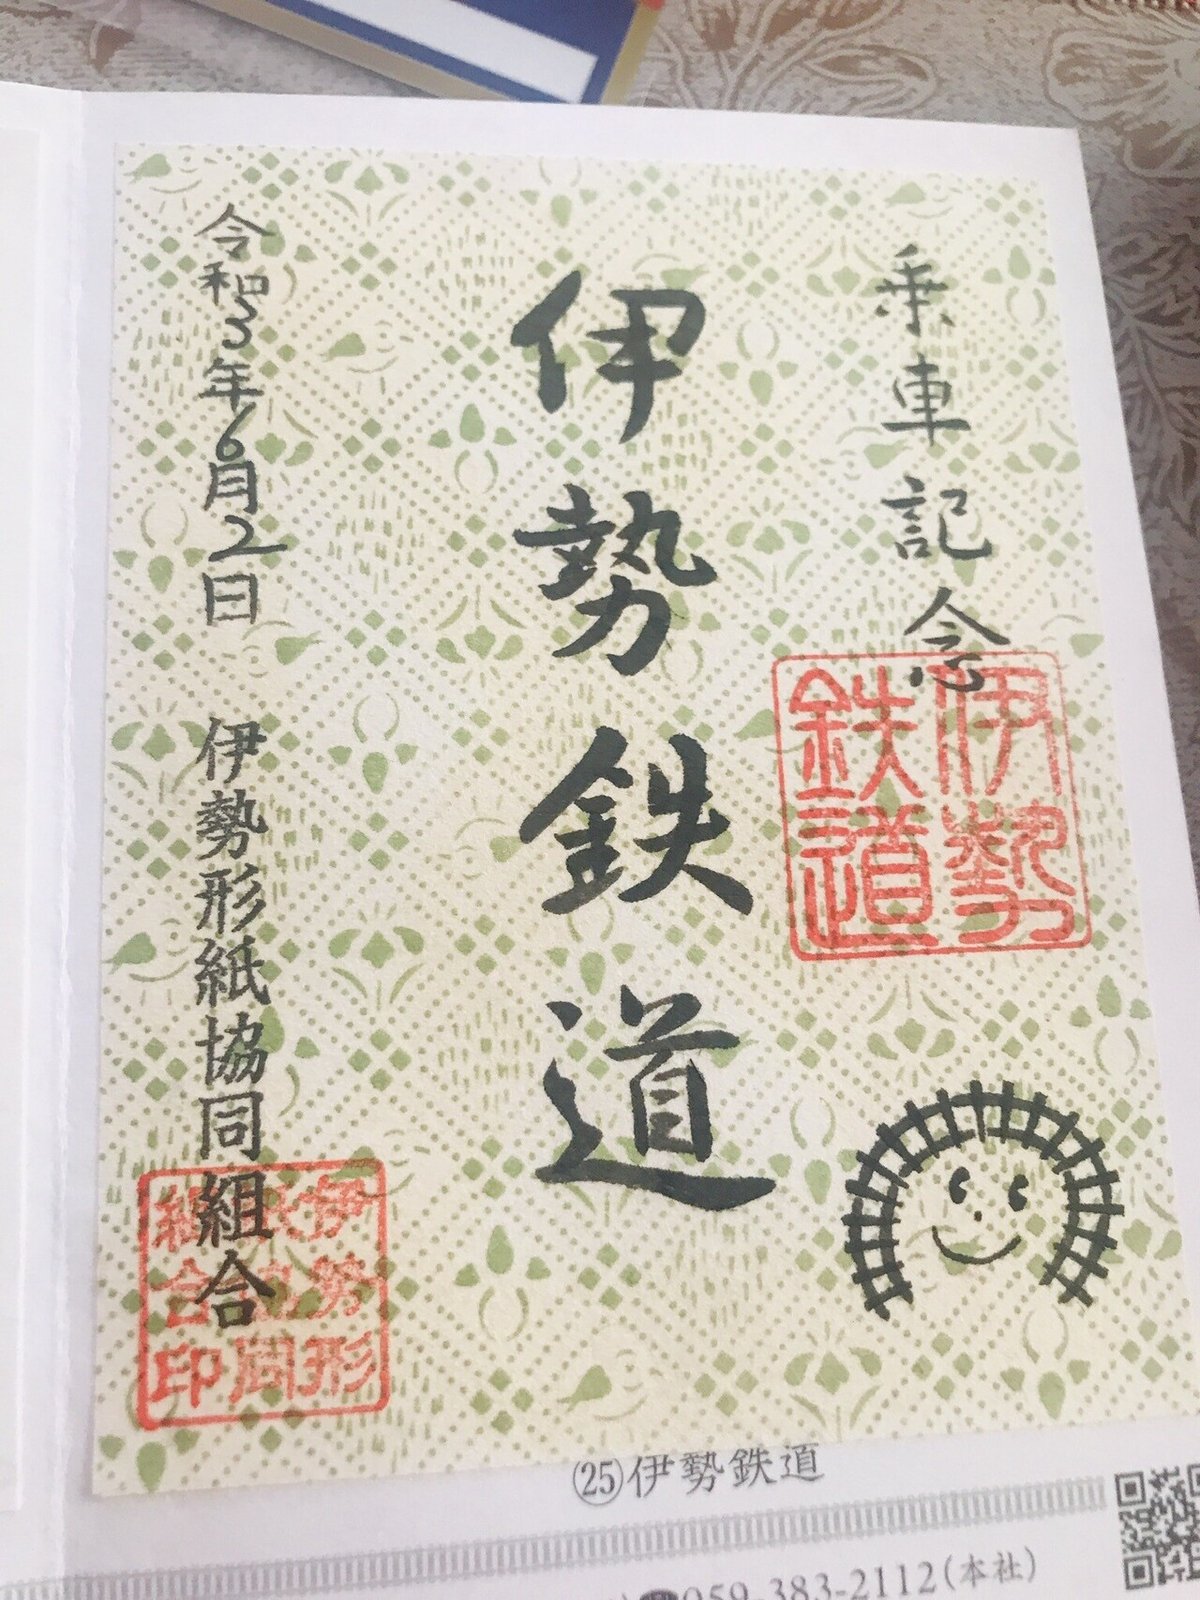 乗車記念
伊勢鉄道
令和3年6月2日 伊勢形紙協同組合
伊勢
鉄道
伊勢形
紙協同
組合印
㉕伊勢鉄道
059-383-2112(本社)